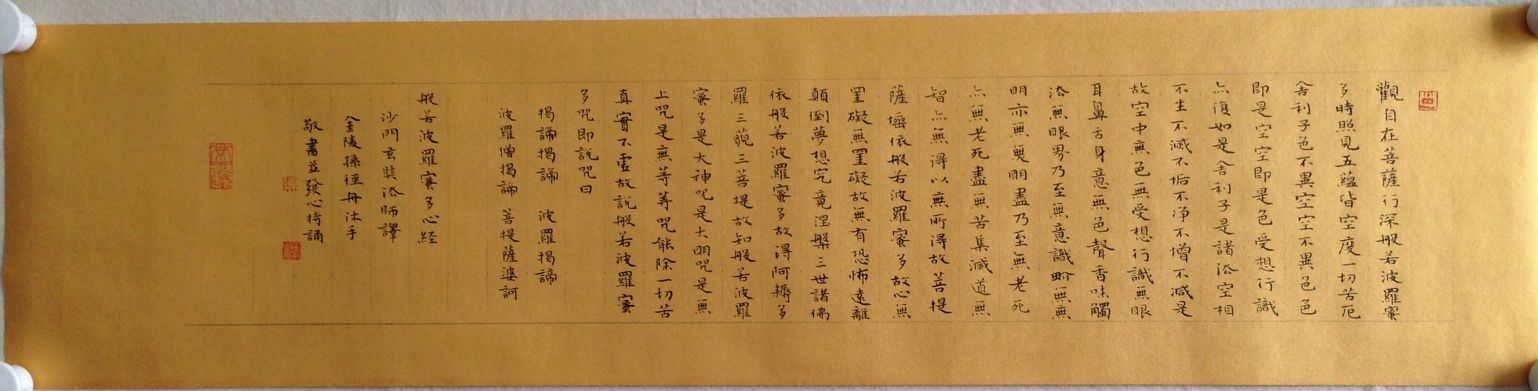 觀自在菩薩行深般若波羅蜜
多時照見五蘊皆空度一切苦厄
舍利子色不異空空不異色色
即是空空即是色受想行識
亦復如是舍利子是諸法空相
不生不滅不垢不净不增不減是
故空中無色無受想行識無眼
耳鼻舌身意無色聲香味觸
法無眼界乃至無意識界無無
明亦無無明盡乃至無老死
亦無老死盡無苦集滅道無
智亦無得以無所得故菩提
薩埵依般若波羅蜜多故心無
罣礙無罣礙故無有恐怖遠離
顛倒夢想究竟涅槃三世諸佛
依般若波羅蜜多故得阿耨多
羅三藐三菩提故知般若波羅
蜜多是大神咒是大明咒是無
上咒是無等等咒能除一切苦
真實不虛故說般若波羅蜜
多咒即說咒曰
揭諦揭諦 波羅揭諦
波羅僧揭諦 菩提薩婆訶
般若波羅蜜多心経
沙門玄奘法師譯
金陵孫徑舟沐手
敬書並發心持誦